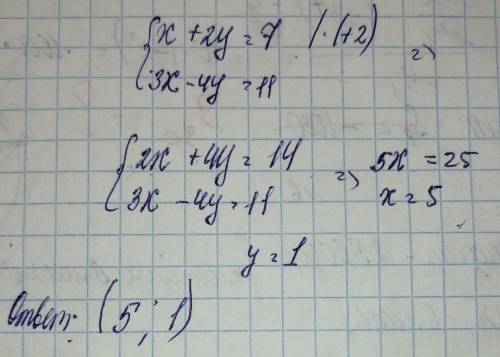 {x + 2y = 7 / · (+2)
3x - 4y = 11 =>
{2x + 4y = 14
3x - 4y = 11 => 5x = 25
x = 5
y = 1
Ответ: (5; 1)